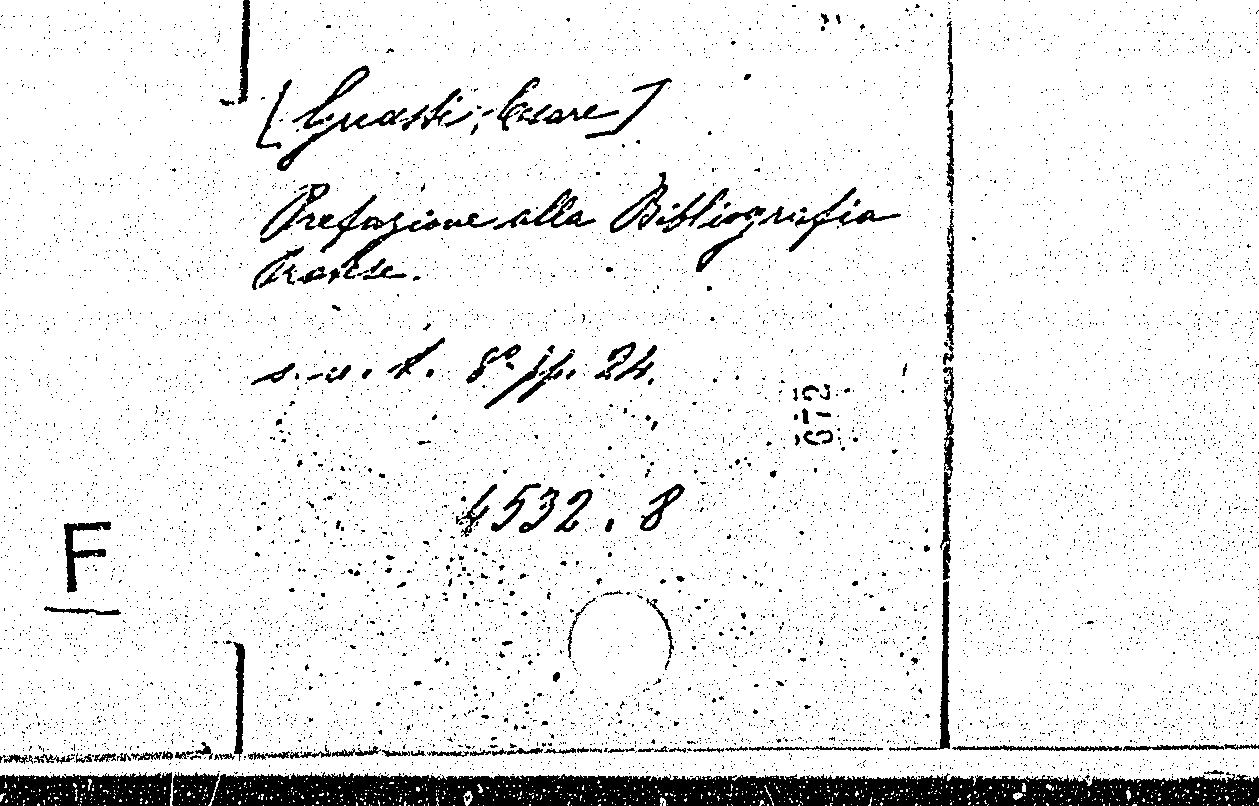 [Guasti, Cesare]
Prefazione alla Bibliografia
Pratese.
s. u. t. 8° pp. 24.
672
4532.8
F